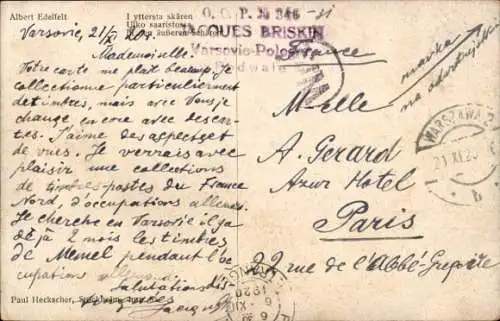 Albert Edelfelt
I yttersta skären
Ulko saaristossa
äußeren
O. C. P. № 346
JACQUES BRISKIN
Varsovie-Pologne
France
marka
na odwrotnej
Varsovie, 21/XI 20.
Mademoiselle.
Votre carte me plait beaucoup. Je
collectionne particulierment
de timbres, mais avec Vous je
change, encore avec des cer-
tes. J'aime des aspects et
de vues. Je verrais avec
plaisir une collections
de timbres-postes du France
Nord, d'occupations allem.
Je cherche en Varsovie il ya
déjà 2 mois les timbres
de Memel pendant l'oc-
cupations allemand.
Salutations
M-elle
A. Gerard
Azur Hotel
Paris
22 rue de l'Abbé Gregoire
WARSZAWA 2
21 XI 20
b
Paul Heckscher, Stockholm